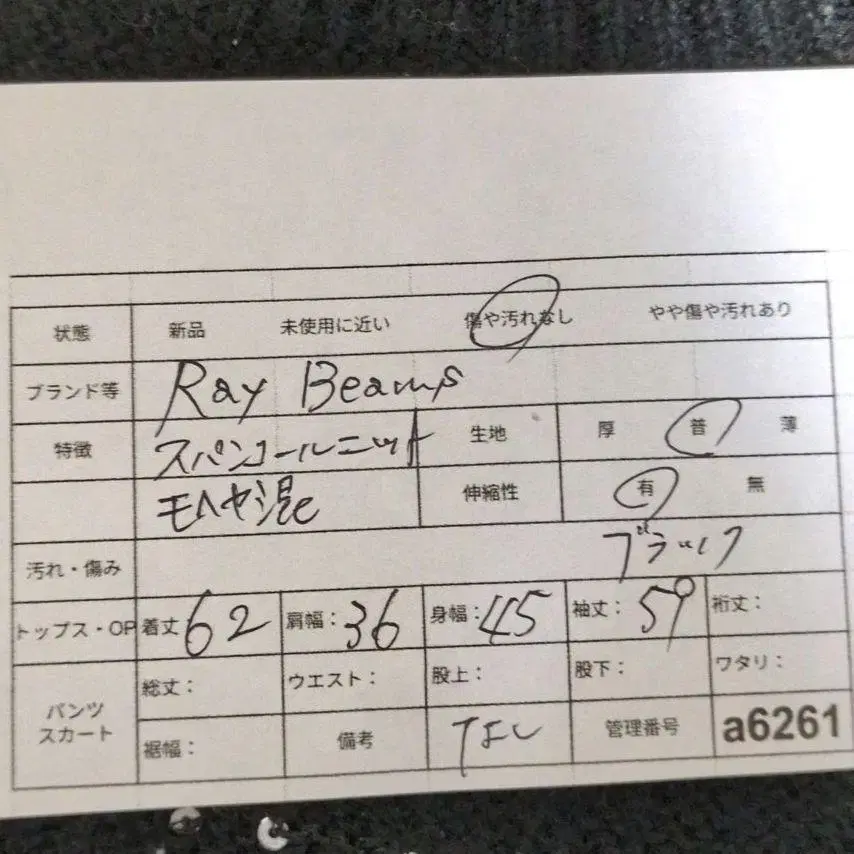 状態 新品 未使用に近い 傷や汚れなし やや傷や汚れあり
ブランド等 Ray Beams
特徴 スパンコールニット 生地 厚 普 薄
モヘヤ混 伸縮性 有 無
汚れ・傷み ブラック
トップス・OP 着丈 62 肩幅: 36 身幅: 45 袖丈: 59 裄丈:
パンツ スカート 総丈: ウエスト: 股上: 股下: ワタリ:
裾幅: 備考 なし 管理番号 a6261